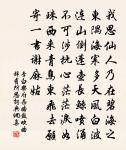 我思仙人乃在碧海之
東隅海寒多天風白波
連山倒蓬壺長鯨噴湧
不可涉撫心茫茫淚如
珠西來青鳥東飛去願
寄一書謝麻姑
李白樂府鼓吹曲
辭有所思